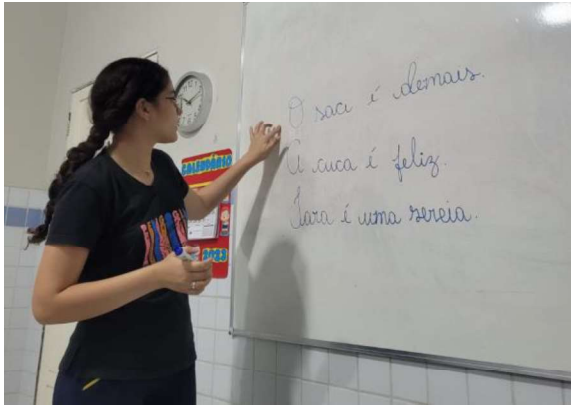 O saci é demais.
A cuca é feliz.
Iara é uma sereia.
CALENDÁRIO
2023